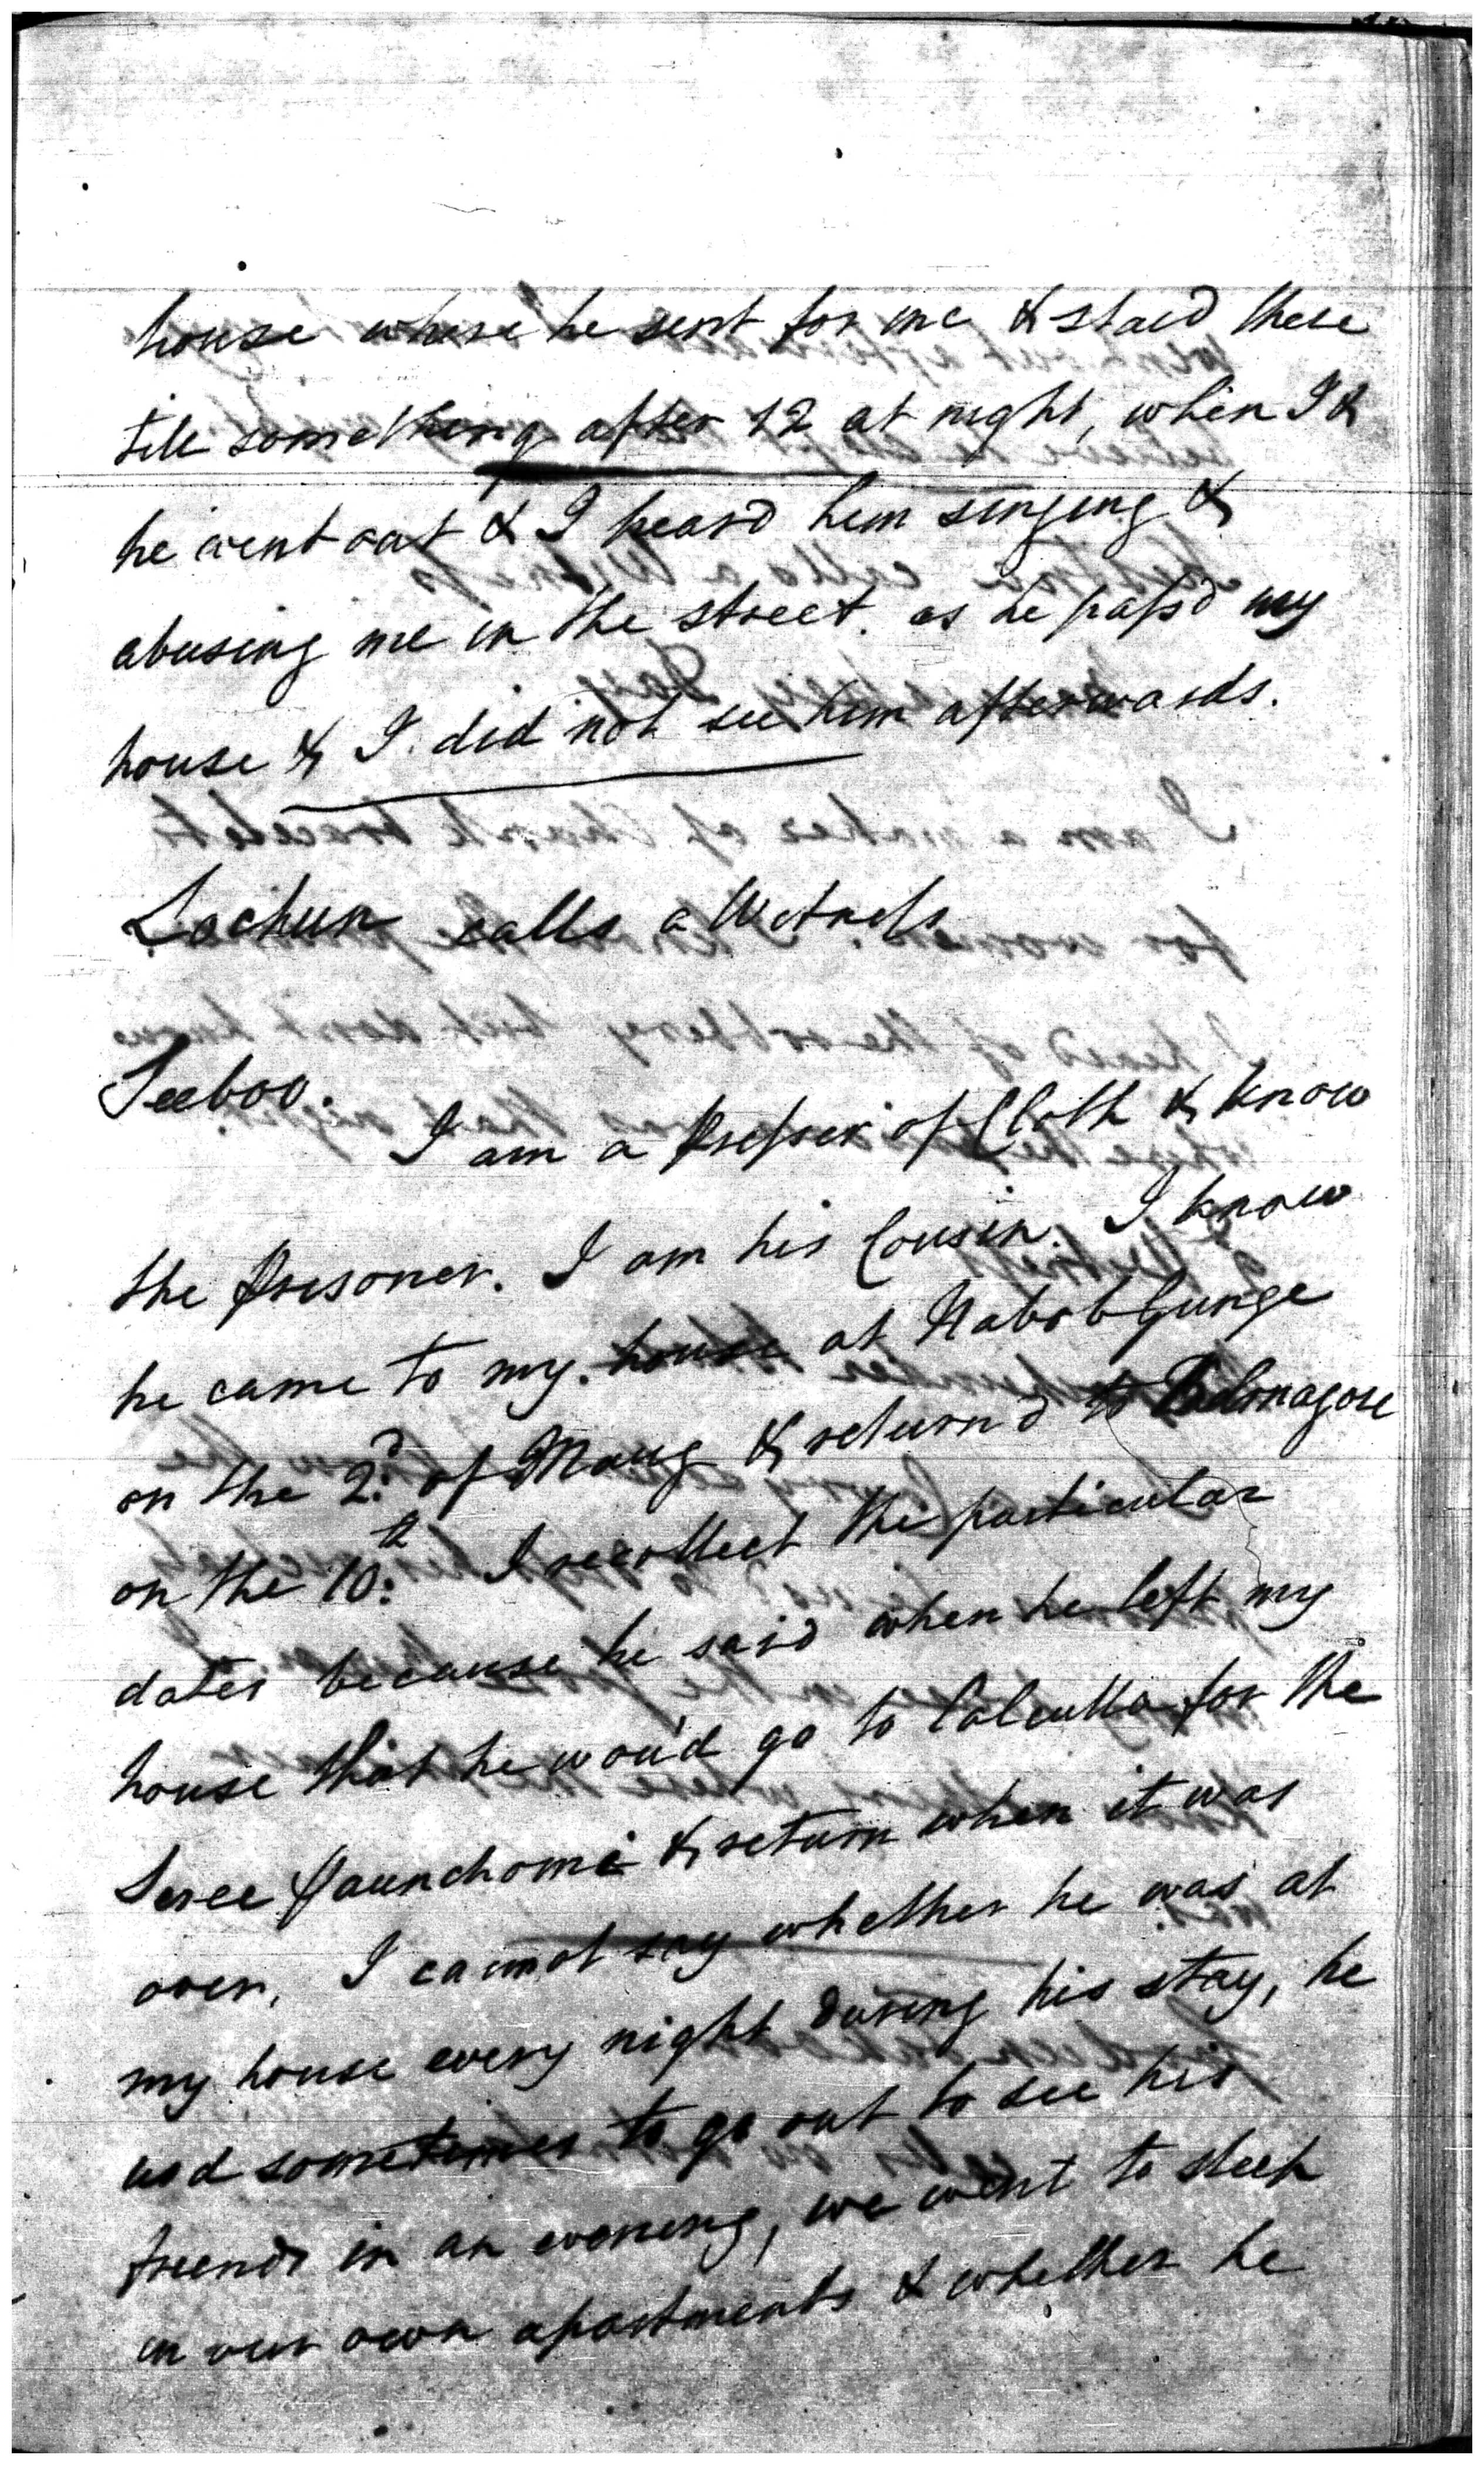 house where he sent for me & staid there
till something after 12 at night, when I &
he went out & I heard him singing &
abusing me in the street. as he pass'd my
house & I did not see him afterwards.
Lochun calls a Witness
Seeboo.
I am a Presser of Cloth & know
the Prisoner. I am his Cousin. I know
he came to my house at NabobGunge
on the 2d. of Maug & return'd to
on the 10th. I recollect the particular
dates because he said when he left my
house that he wou'd go to Calcutta for the
Seree Paunchomi & return when it was
over, I cannot say whether he was at
my house every night during his stay, he
usd sometimes to go out to see his
friends in an evening, we went to sleep
in our own apartments & whether he